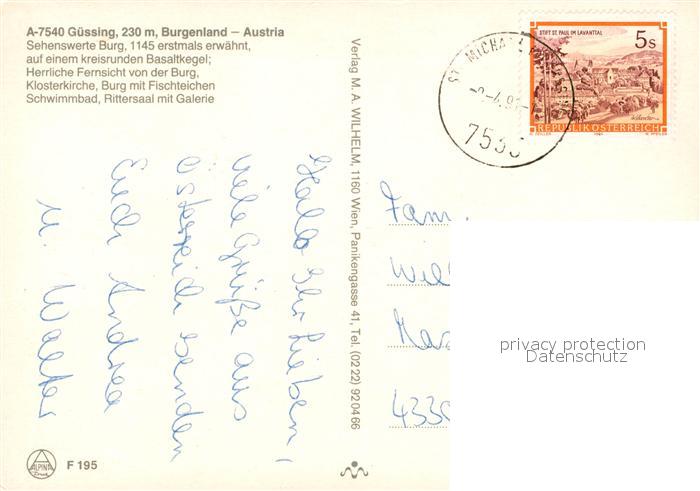 A-7540 Güssing, 230 m, Burgenland – Austria
Sehenswerte Burg, 1145 erstmals erwähnt,
auf einem kreisrunden Basaltkegel;
Herrliche Fernsicht von der Burg,
Klosterkirche, Burg mit Fischteichen
Schwimmbad, Rittersaal mit Galerie
Hallo Ihr Lieben,
viele Grüße aus
Österreich senden
Euch Andrea
u. Walter
ALPINA
F 195
Verlag M. A. WILHELM, 1160 Wien, Panikengasse 41, Tel. (0222) 92 04 66
STIFT ST. PAUL IM LAVANTTAL
5 S
REPUBLIK ÖSTERREICH
ST. MICHAEL
7535
Fam.
Will
433
privacy protection
Datenschutz